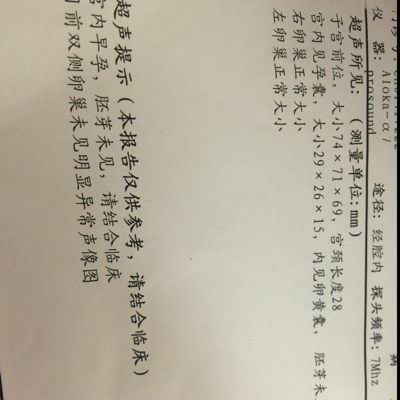 仪 器: Aloka-α7 途径: 经腔内 探头频率: 7Mhz
prosound
超声所见: (测量单位:mm)
子宫前位, 大小74×71×69, 宫颈长度28
宫内见孕囊, 大小29×26×15, 内见卵黄囊, 胚芽未
右卵巢正常大小
左卵巢正常大小
超声提示 (本报告仅供参考, 请结合临床)
宫内早孕, 胚芽未见, 请结合临床
目前双侧卵巢未见明显异常声像图